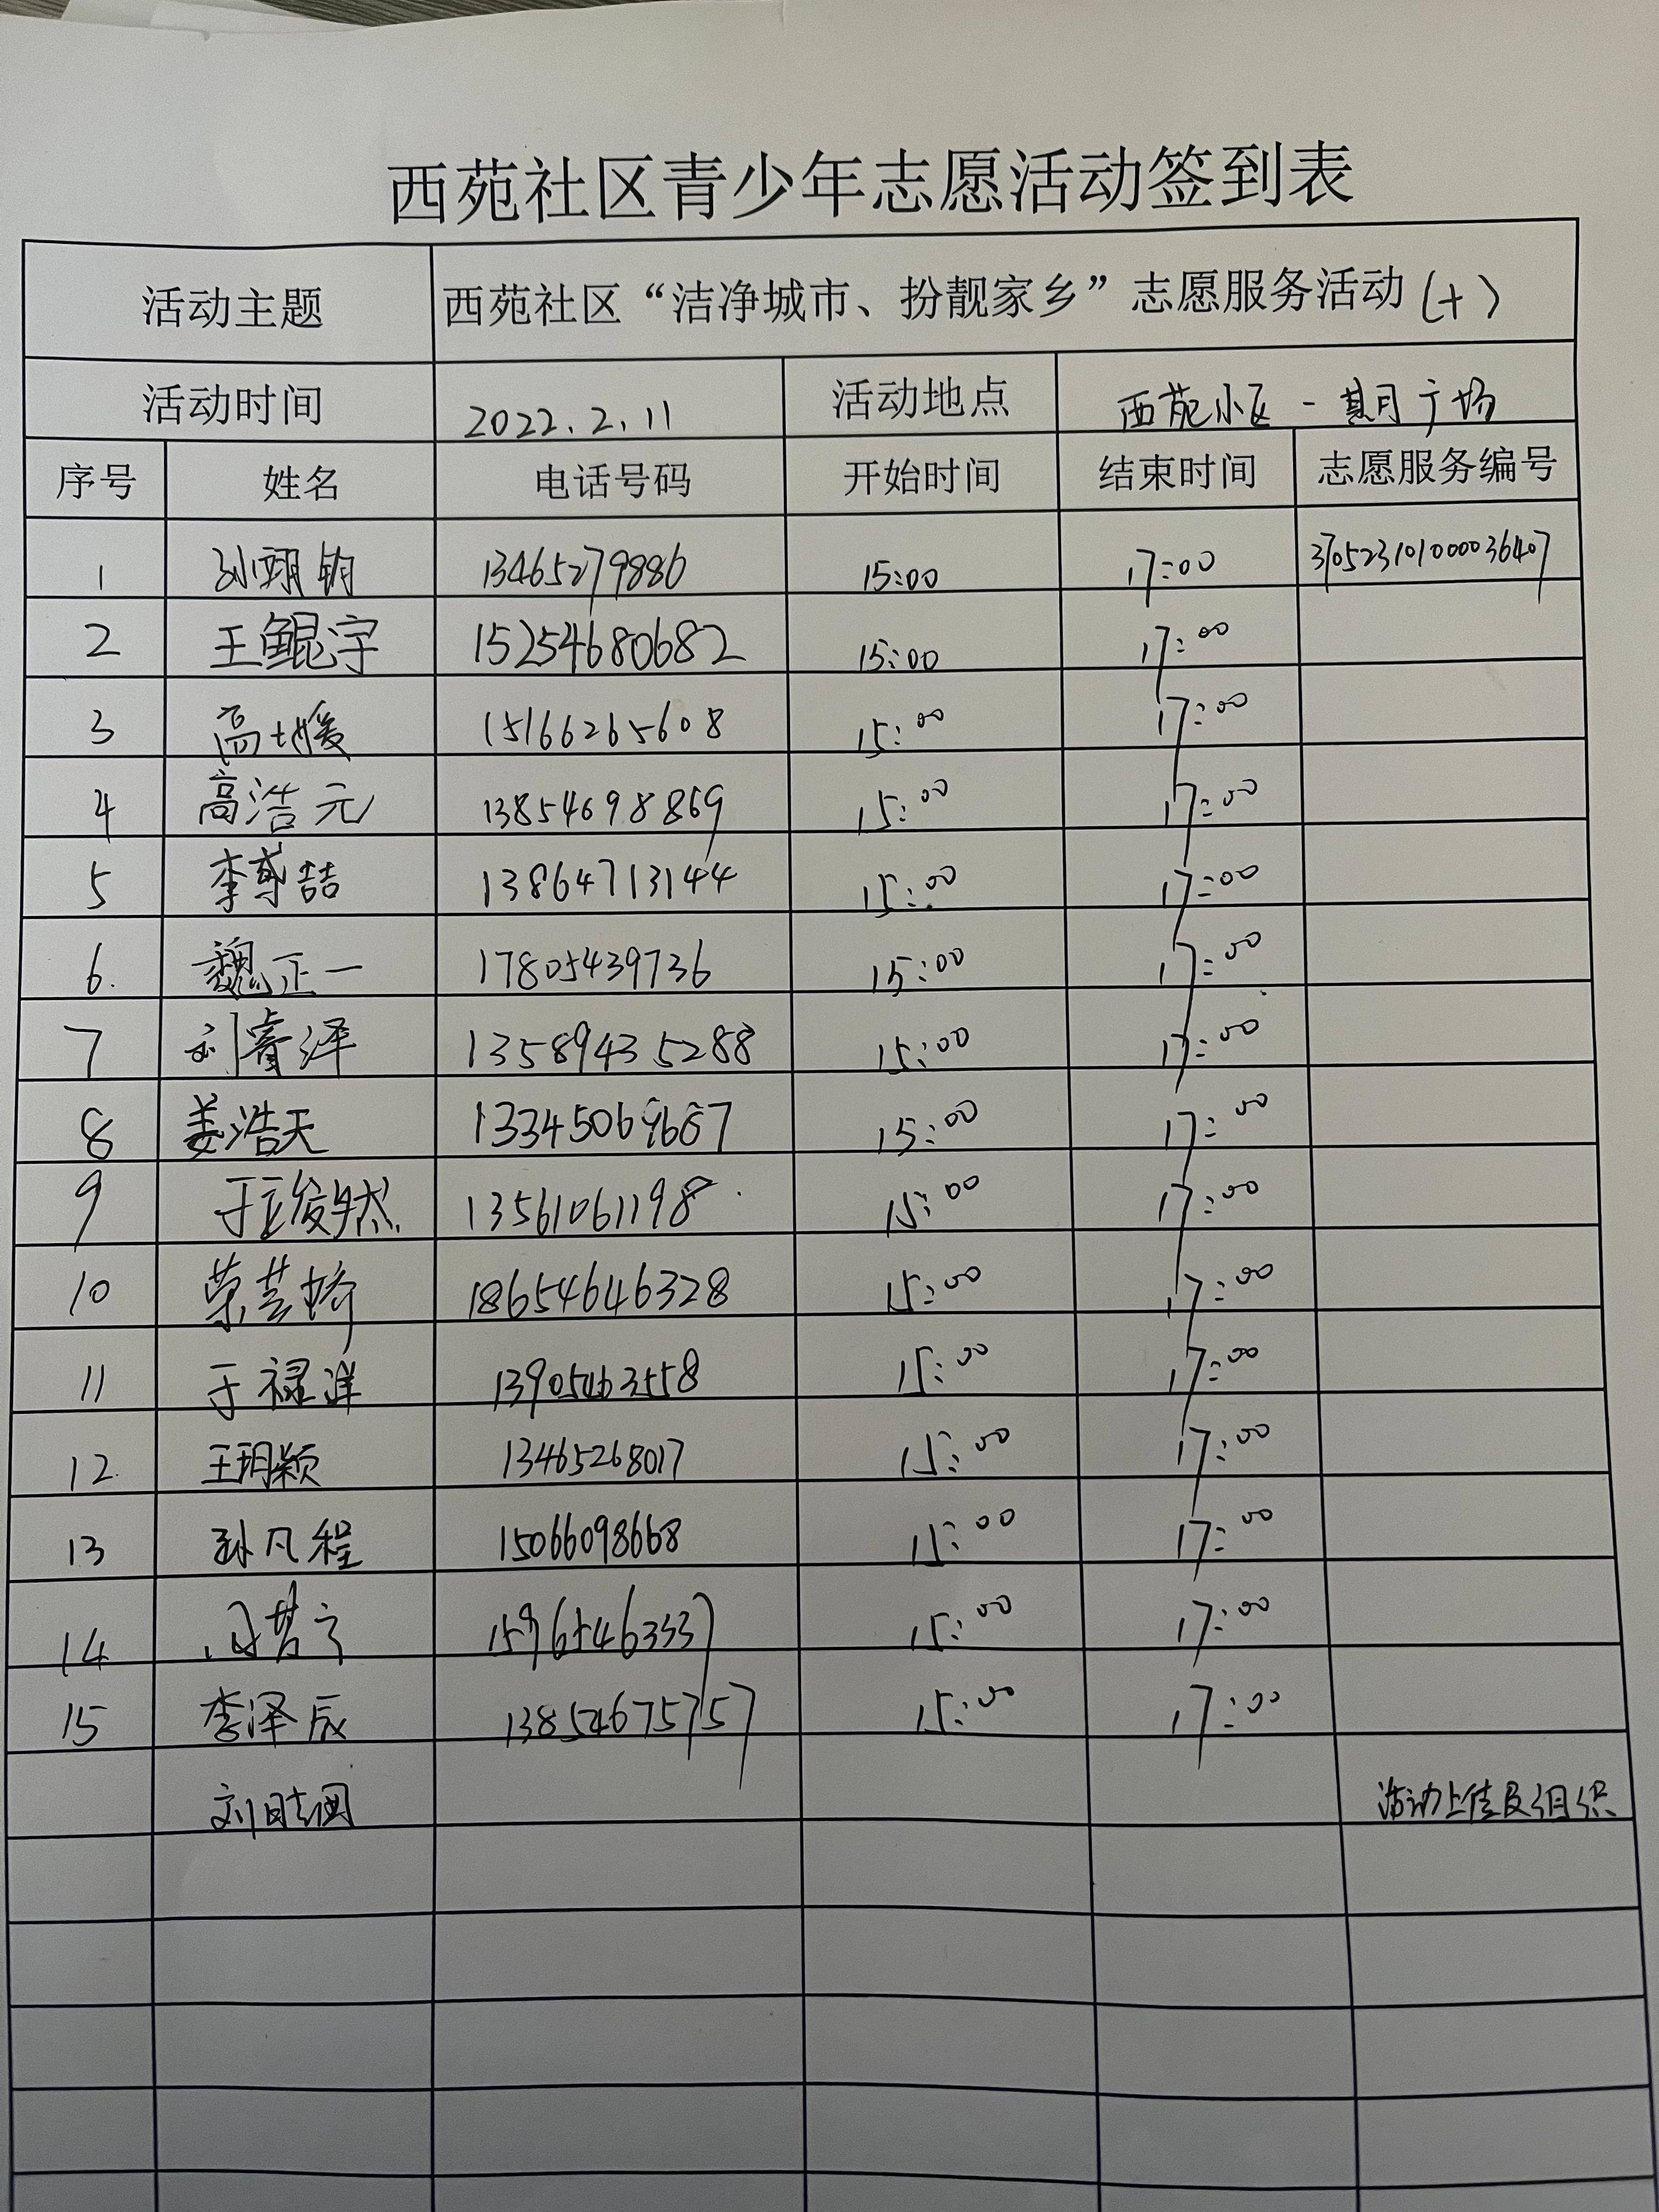 西苑社区青少年志愿活动签到表
活动主题 西苑社区“洁净城市、扮靓家乡”志愿服务活动(十)
活动时间 2022.2.11 活动地点 西苑小区-其月广场
序号 姓名 电话号码 开始时间 结束时间 志愿服务编号
1 孙翊钧 13465279886 15:00 17:00 3705231010000036407
2 王鲲宇 15254680682 15:00 17:00
3 高士媛 15166265608 15:00 17:00
4 高浩元 13854698869 15:00 17:00
5 李尊喆 13864713144 15:00 17:00
6. 魏正一 17805439736 15:00 17:00
7 刘睿泽 13589435288 15:00 17:00
8 姜浩天 13345069687 15:00 17:00
9 于 然 13561061198 15:00 17:00
10 荣芸娇 18654646328 15:00 17:00
11 于禄洋 13905463558 15:00 17:00
12. 王玥颖 13465268017 15:00 17:00
13 孙凡程 15066098668 15:00 17:00
14 15965463337 15:00 17:00
15 李泽辰 13854675757 15:00 17:00
刘 活动上传及组织